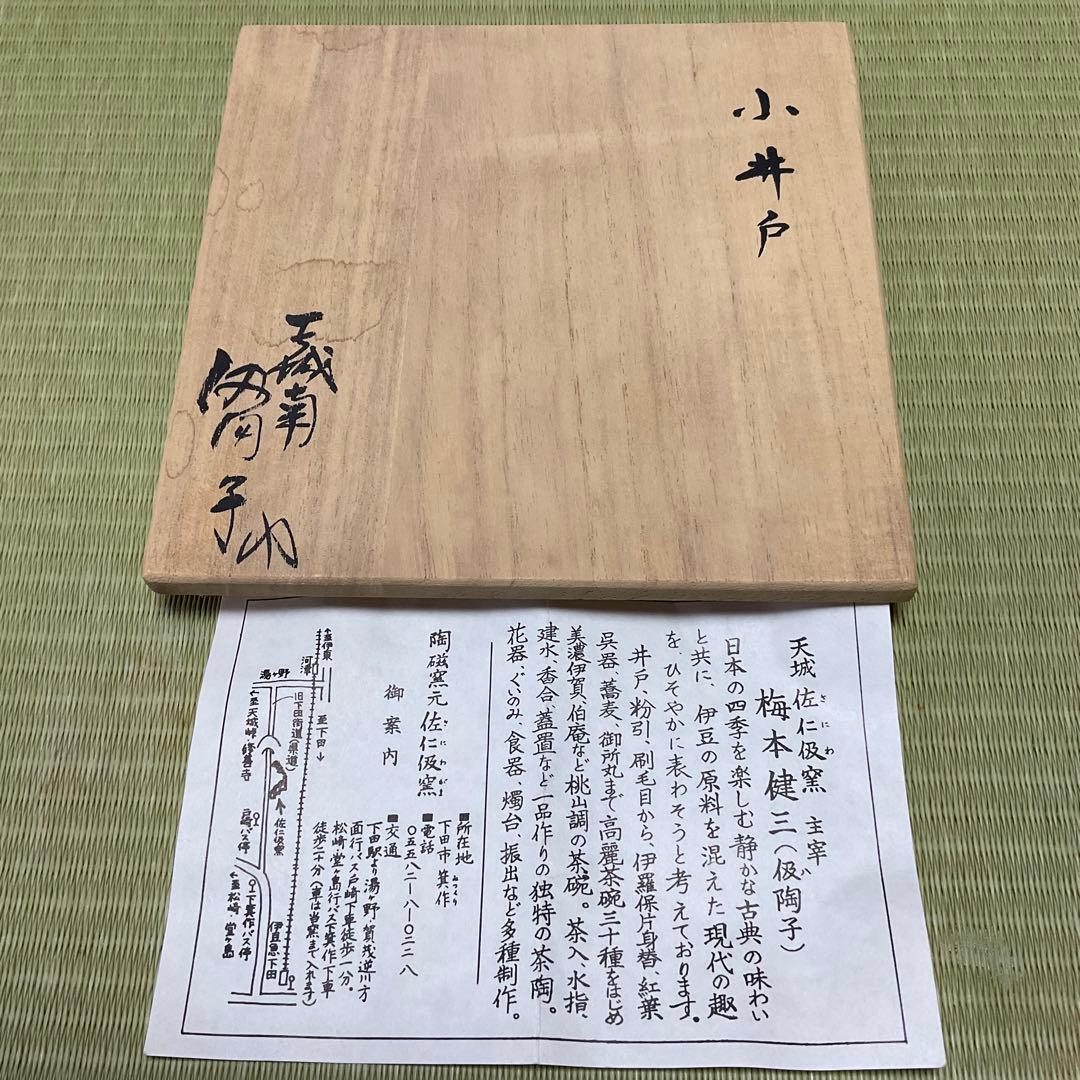 小井戸
天城南
伋陶子
天城 佐仁伋窯 主宰
さにわ
梅本健三(伋陶子)
日本の四季を楽しむ静かな古典の味わい
と共に、伊豆の原料を混えた現代の趣
を、ひそやかに表わそうと考えております。
井戸、粉引、刷毛目から、伊羅保片身替、紅葉
呉器、蕎麦、御所丸まで高麗茶碗三十種をはじめ
美濃伊賀、伯庵など桃山調の茶碗。茶入、水指、
建水、香合、蓋置など一品作りの独特の茶陶。
花器、ぐいのみ、食器、燭台、振出など多種制作。
陶磁窯元 佐仁伋窯
さにわがま
御案内
■所在地
下田市箕作
みつくり
■電話
〇五五八二―八―〇三二八
■交通
下田駅より湯ヶ野・賀茂逆川方
面行バス戸崎下車徒歩一分。
松崎・堂ヶ島行バス下箕作下車
徒歩二十分(車は当窯まで入れます)
至伊東
河津
湯ヶ野
至下田
旧下田街道(県道)
至天城峠・修善寺
佐仁伋窯
戸崎バス停
下箕作バス停
至松崎・堂ヶ島
伊豆急下田